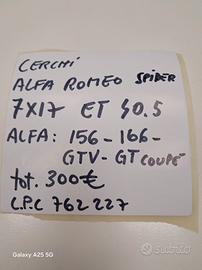 CERCHI
ALFA ROMEO SPIDER
7X17 ET 40.5
ALFA: 156-166-
GTV-GT COUPÉ
tot. 300€
C.P.C 762227
Galaxy A25 5G
subito